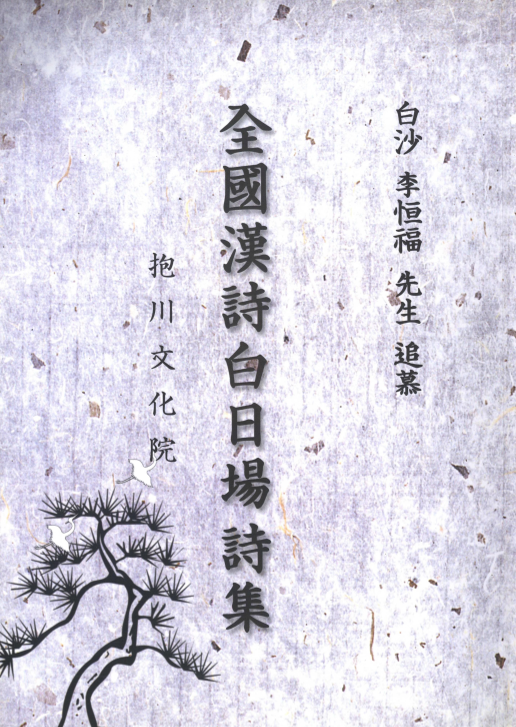 白沙 李恒福 先生 追慕
全國漢詩白日場 詩集
抱川文化院